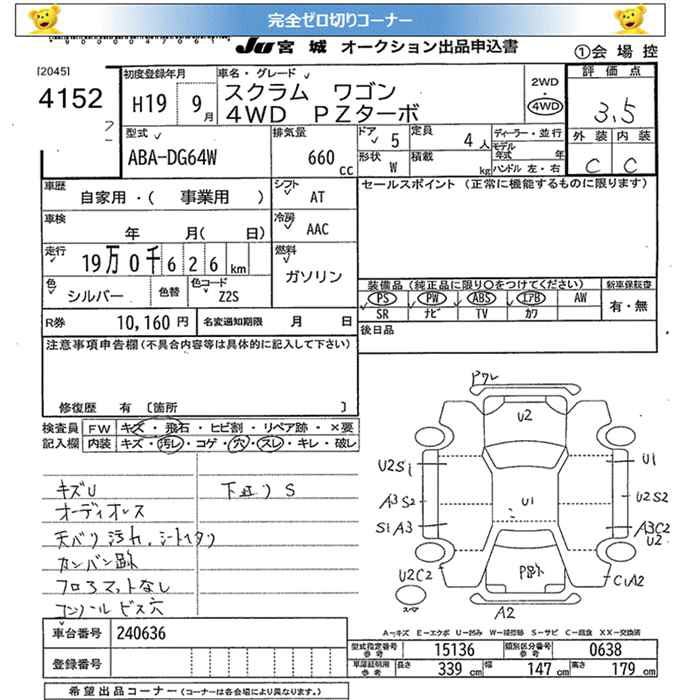 完全ゼロ切りコーナー
JU 宮城 オークション出品申込書
①会場控
[2045]
4152
初度登録年月
H19 9月
車名・グレード
スクラム ワゴン
4WD PZターボ
2WD
・
4WD
評価点
3.5
外装 内装
C C
型式
ABA-DG64W
排気量
660 cc
ドア 5
定員 4人
形状 W
積載 kg
ディーラー・並行
モデル年式 年
ハンドル 左・右
車歴
自家用・( 事業用 )
シフト AT
セールスポイント (正常に機能するものに限ります)
車検
年 月( 日)
冷房 AAC
走行
19万0千626km
燃料
ガソリン
色
シルバー
色替
色コード
Z2S
装備品 (純正品に限り○をつけてください)
新車保証書
PS PW ABS エアB AW
SR ナビ TV カワ
有・無
R券 10,160円
名変通知期限 月 日
後日品
注意事項申告欄(不具合内容等は具体的に記入して下さい)
修復歴 有 〔箇所 〕
検査員
記入欄
FW キズ・飛石・ヒビ割・リペア跡・×要
内装 キズ・汚レ・コゲ・穴・スレ・キレ・破レ
キズU
オーディオレス
天バリ汚れ、シートヘタリ
カンバン跡
フロアマットなし
コンソールビス穴
下廻りS
アワレ
U2
U2S1
U1
A3S2
U1
U2S2
S1A3
A3C2
U2
U2C2
P跡
C1A2
スマ
A2
A―キズ E―エクボ U―凹み W―補修跡 S―サビ C―腐食 XX―交換済
車台番号 240636
登録番号
型式指定番号 参考 15136
類別区分番号 参考 0638
車庫証明用 参考 長さ 339 cm 幅 147 cm 高さ 179 cm
希望出品コーナー (コーナーは各会場により異なります。)